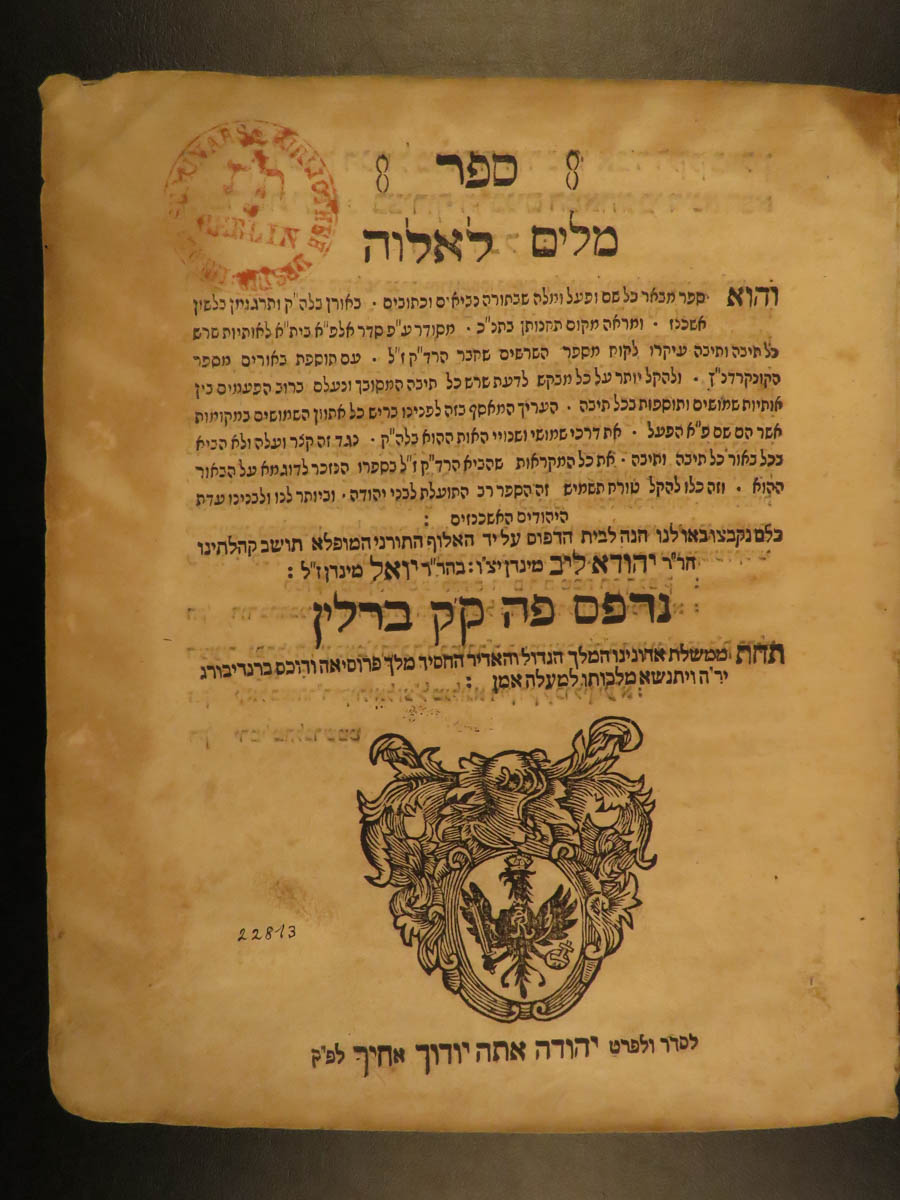 ספר
מלים לאלוה
והוא ספר מבאר כל שם ופעל ומלה שבתורה נביאים וכתובים . באורן בלה״ק ותרגומן בלשון
אשכנז . ומראה מקום תחנותן בתנ״כ . מסודר ע״פ סדר אלפ״א בית״א לאותיות שרש
כל תיבה ותיבה עיקרו לקוח מספר השרשים שחבר הרד״ק ז״ל . עם תוספת באורים מספר
הקונקרדנ״ץ . ולהקל יותר על כל מבקש לדעת שרש כל תיבה המסובך ונעלם ברוב הפעמים בין
אותיות שמושים ותוספות בכל תיבה . העריך המאסף בזה לפנינו בריש כל אתוון השמושים במקומות
אשר הם שם פ״א הפעל . את דרכי שמושי ושנויי האות ההוא בלה״ק . כנגד זה קצר ועלה ולא הביא
בכל באור כל תיבה ותיבה . את כל המקראות שהביא הרד״ק ז״ל בספרו הנזכר לדוגמא על הבאור
ההוא . וזה כלו להקל טורח תשמיש זה הספר רב התועלת לבני יהודה . וביותר לנו ולבנינו עדת
היהודים האשכנזים :
כלם נקבצו באו לנו הנה לבית הדפוס על יד האלוף התורני המופלא תושב קהלתינו
הר״ר יהודא ליב מינדן יצ״ו : בהר״ר יואל מינדן ז״ל :
נדפס פה ק״ק ברלין
תחת ממשלת אדונינו המלך הגדול והאדיר החסיד מלך פרוסיאה ודוכס ברנדיבורג
יר״ה ויתנשא מלכותו למעלה אמן :
22813
לסדר ולפרט יהודה אתה יודוך אחיך לפ״ק
BERLIN